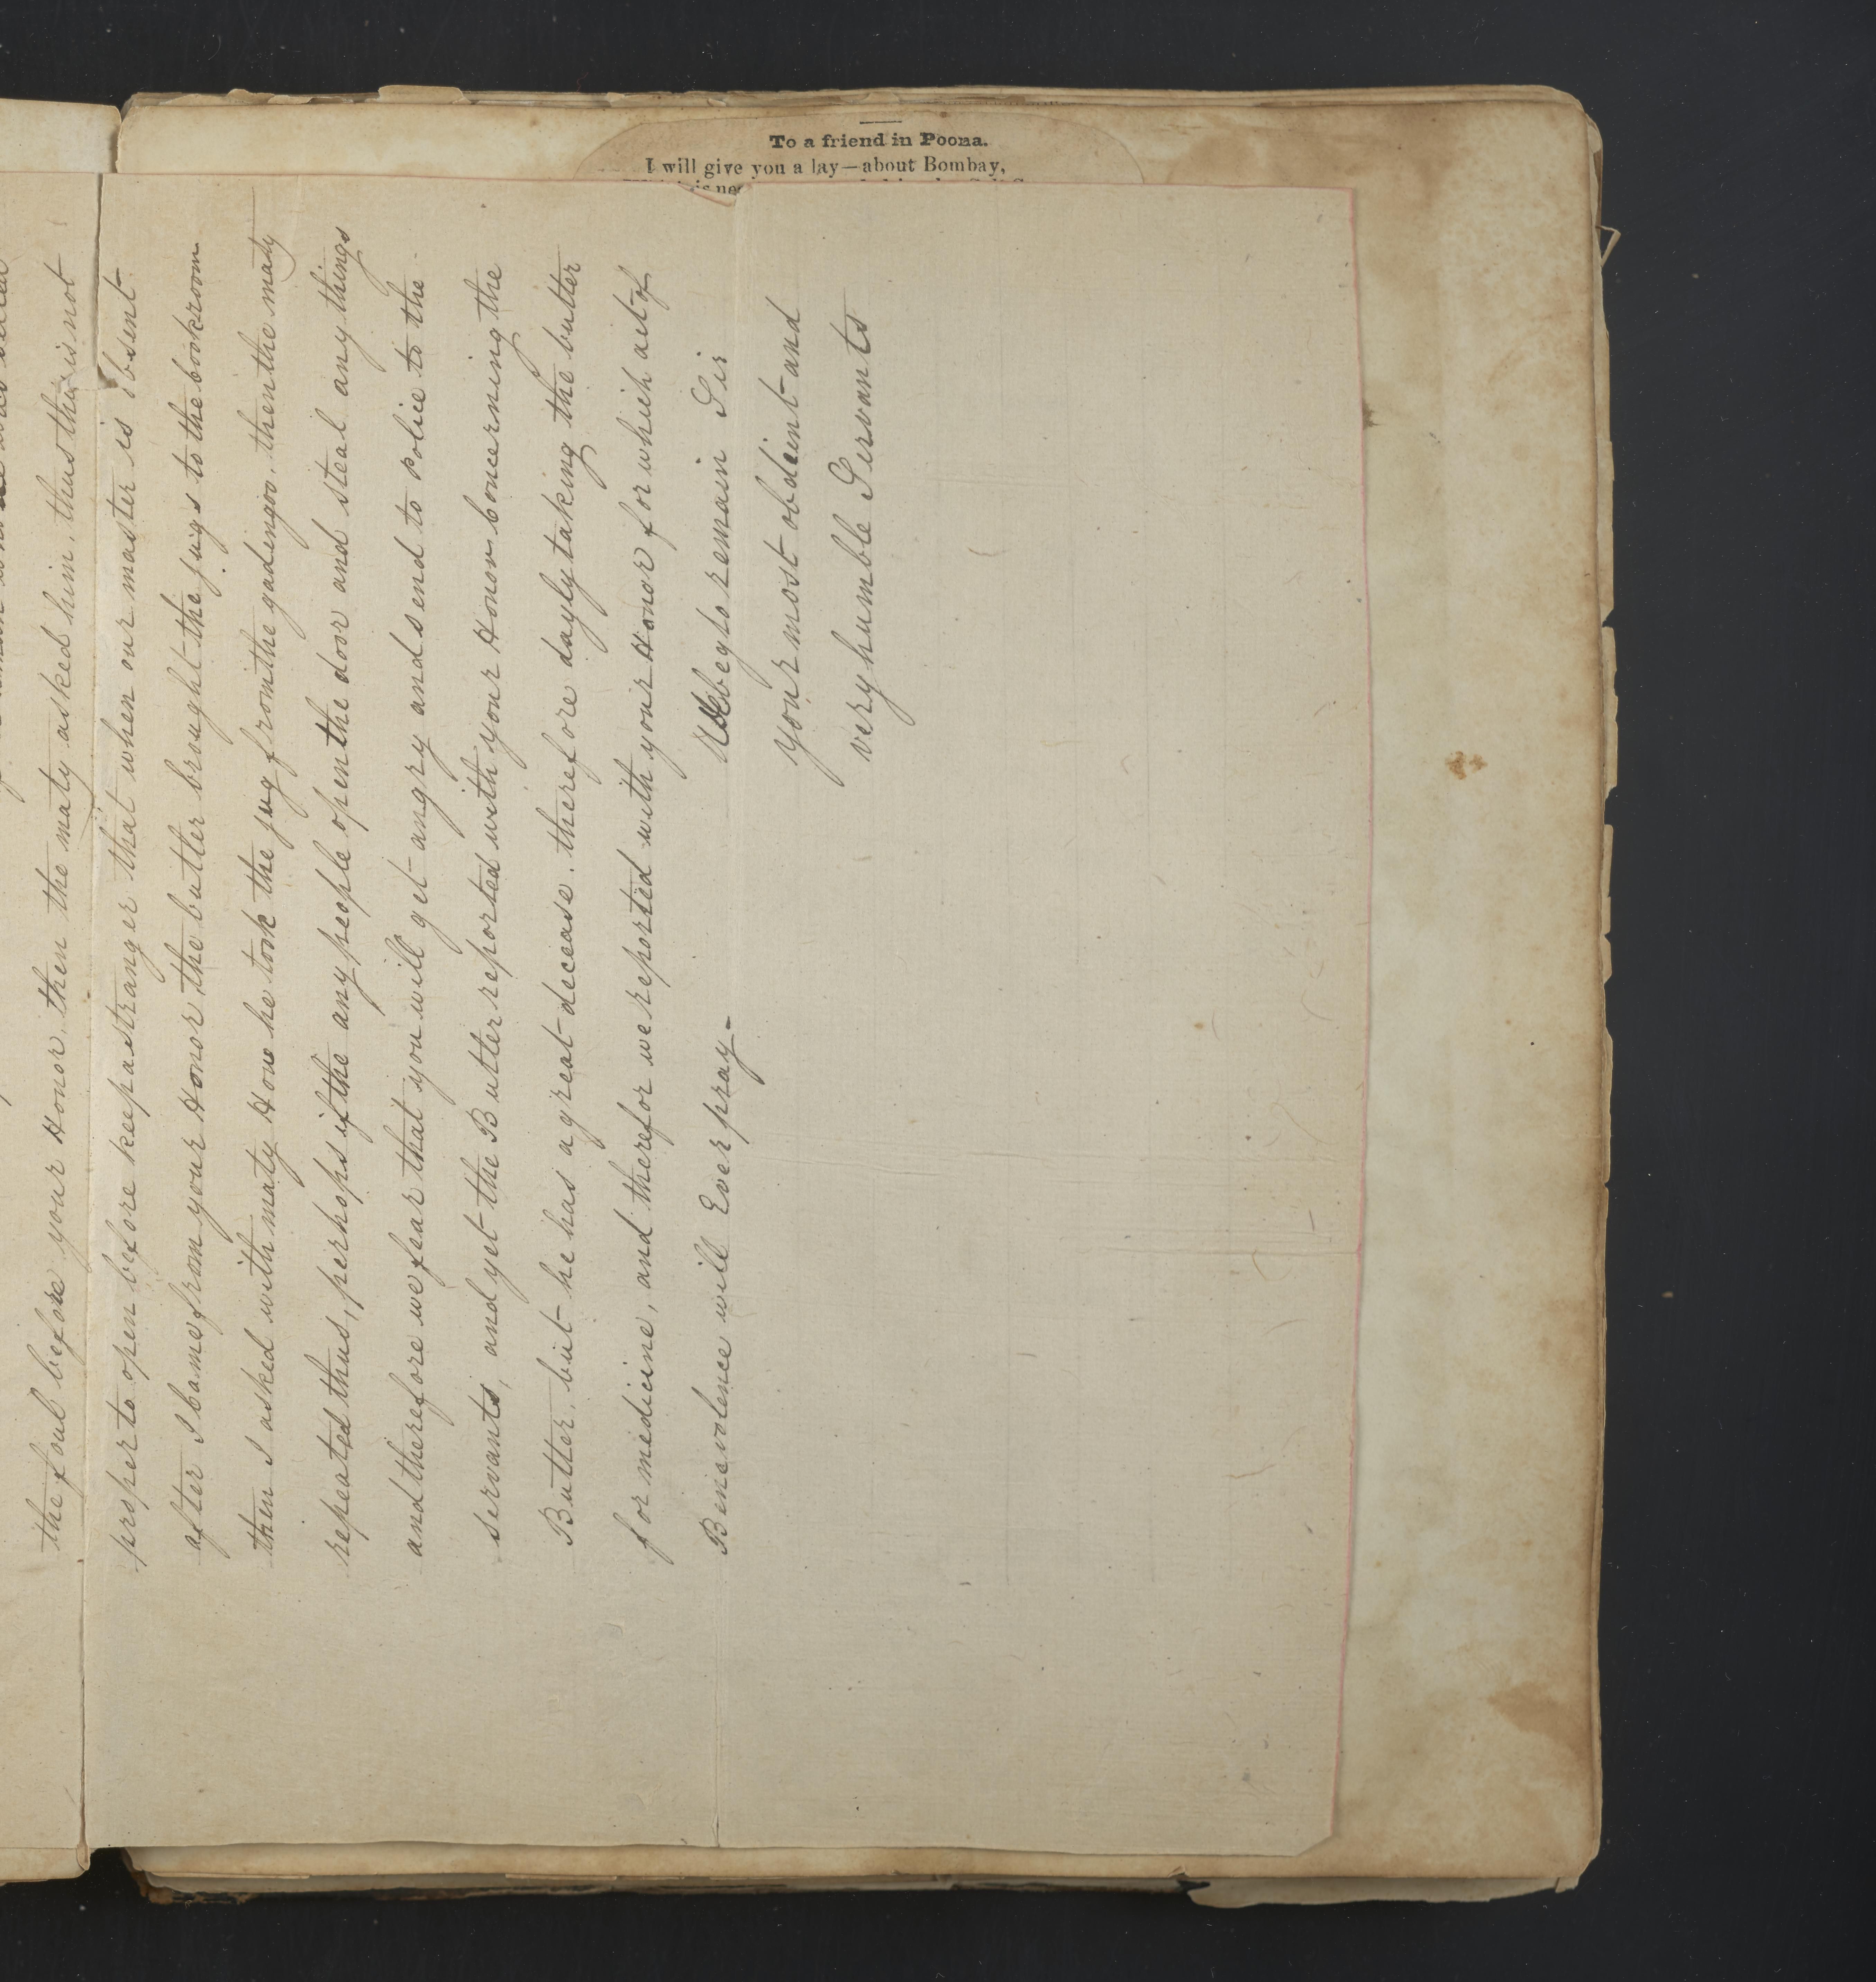 To a friend in Poona.
I will give you a lay—about Bombay,
the foul before your Honor, then the maty asked him, thus this is not
proper to open before keep a stranger that when our master is absent
after I bame from your Honor the butler brought the jugs to the bookroom
then I asked with maty Hone he took the jug from the gadingoo, then the maty
repeated thus, perhops if the any people open the door and steal any things
and therefore we fear that you will get angry and send to police to the
servants, and yet the Butler reported with your Honor boncerning the
Butter, but he has a great decease. therefore dayly taking the butter
for medicine, and therefor we reported with your Honor for which act of
Benevolence will Ever pray-
We beg to remain Sir
your most obdeint and
very humble Servants